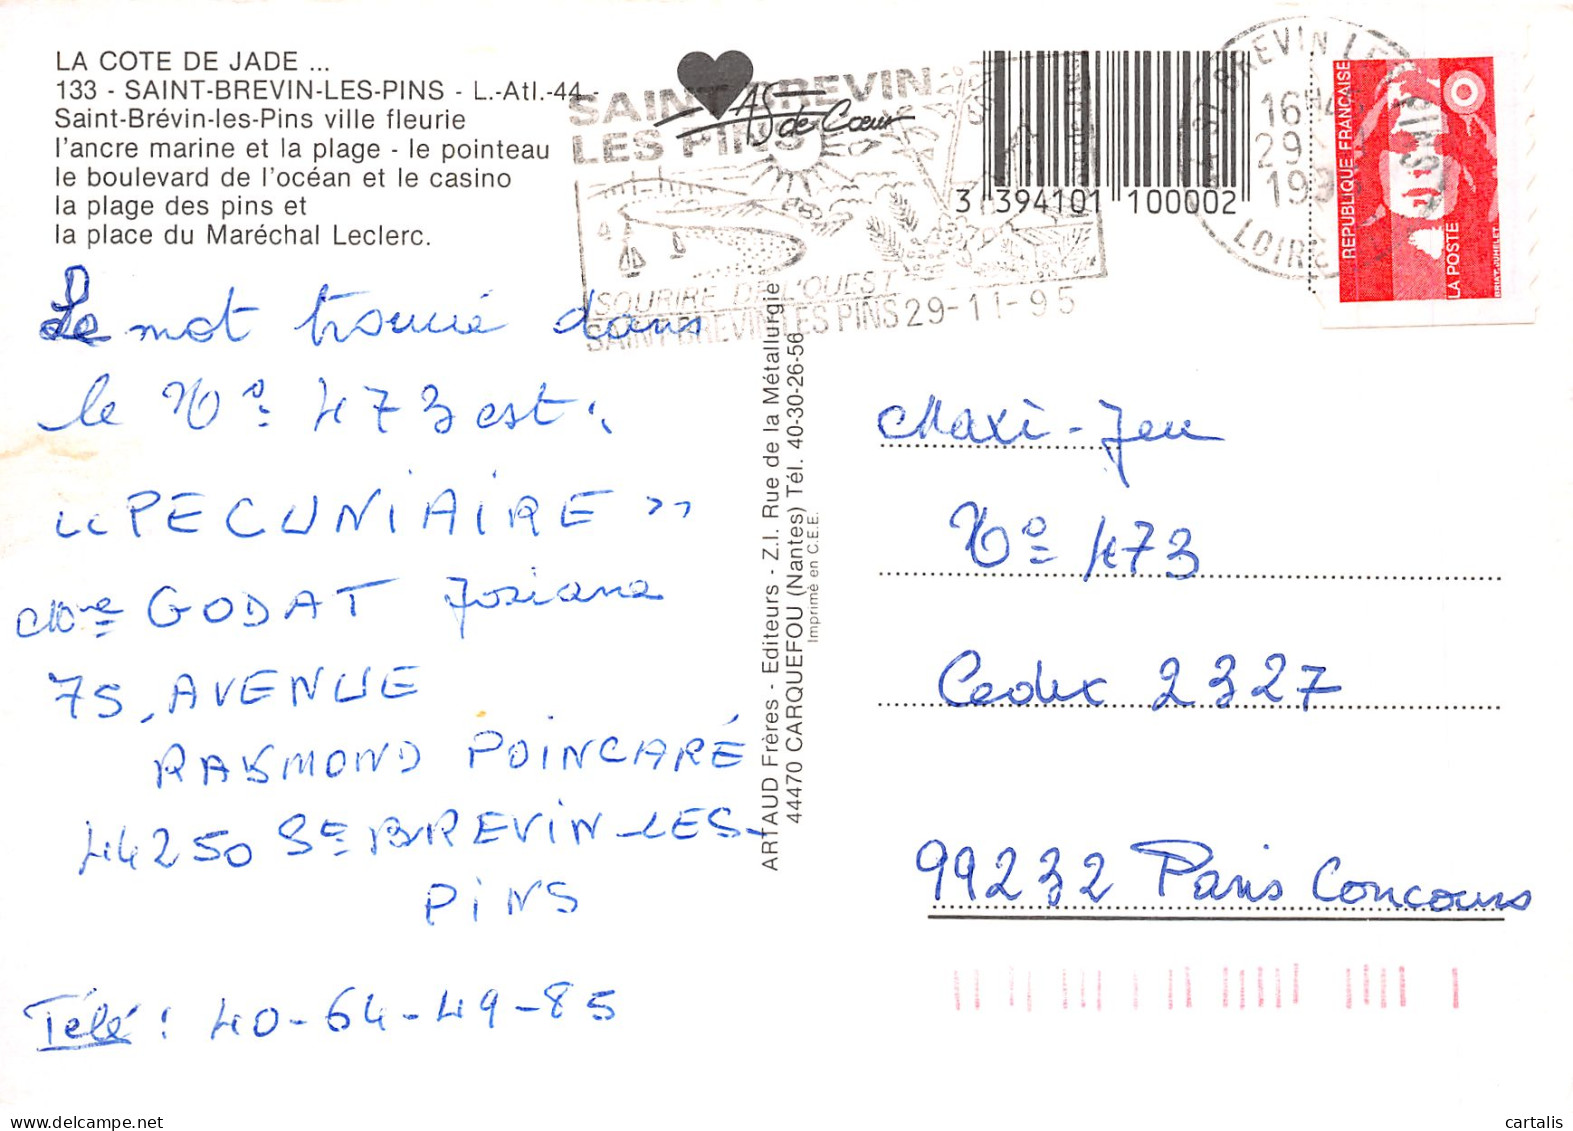 LA COTE DE JADE ...
133 - SAINT-BREVIN-LES-PINS - L.-Atl.-44 -
Saint-Brévin-les-Pins ville fleurie
l'ancre marine et la plage - le pointeau
le boulevard de l'océan et le casino
la plage des pins et
la place du Maréchal Leclerc.
SAINT-BREVIN
LES PINS
AS de Cœur
SOURIRE DE L'OUEST
SAINT-BREVIN-LES PINS 29-11-95
3 394101 100002
ST BREVIN LES PINS
16H
29
199
LOIRE
REPUBLIQUE FRANÇAISE
LA POSTE
BRIAT-JUMELET
Le mot trouvé dans
le N° 473 est :
"PECUNIAIRE"
Mme GODAT Josiane
75, AVENUE
RAYMOND POINCARÉ
44250 St BREVIN-LES-
PINS
Télé : 40-64-49-85
ARTAUD Frères - Editeurs - Z.I. Rue de la Métallurgie
44470 CARQUEFOU (Nantes) Tél. 40-30-26-56
Imprimé en C.E.E.
Maxi-Jeu
N° 473
Cedex 2327
99232 Paris Concours
cartalis